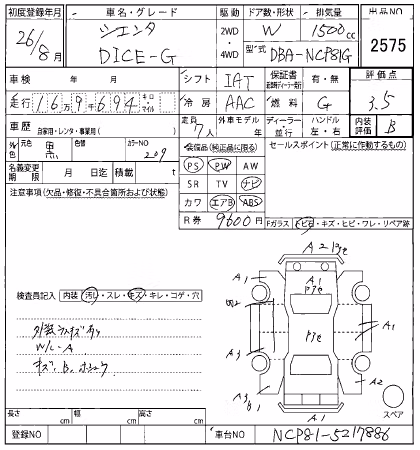 初度登録年月 車名・グレード 駆動 ドア数・形状 排気量 出品NO
26/8月 シエンタ DICE-G 2WD・4WD W 1500cc 2575
型式 DBA-NCP81G
車検 年 月 シフト IAT 保証書 有・無 評価点
走行 169694 キロ マイル 冷房 AAC 燃料 G 3.5
車歴 自家用・レンタ・事業用( ) 定員 7人 外車モデル 年 ディーラー・並行 ハンドル 左・右 内装評価 B
外色 元色 黒 色替 カラーNO 209 装備品(純正品に限る) セールスポイント(正常に作動するもの)
名義変更期限 月 日迄 積載 t PS PW AW
注意事項(欠品・修復・不具合箇所および状態) SR TV ナビ
カワ エアB ABS
R券 9600円 Fガラス トビ石・キズ・ヒビ・ワレ・リペア跡
検査員記入 内装 汚れ・スレ・キズ・キレ・コゲ・穴
外装
W/C-A
キズ、B
A2
A1 A1
A1
A3 A2
A3
A1
スペア
長さ cm 幅 cm 高さ cm
登録NO 車台NO NCP81-5217886